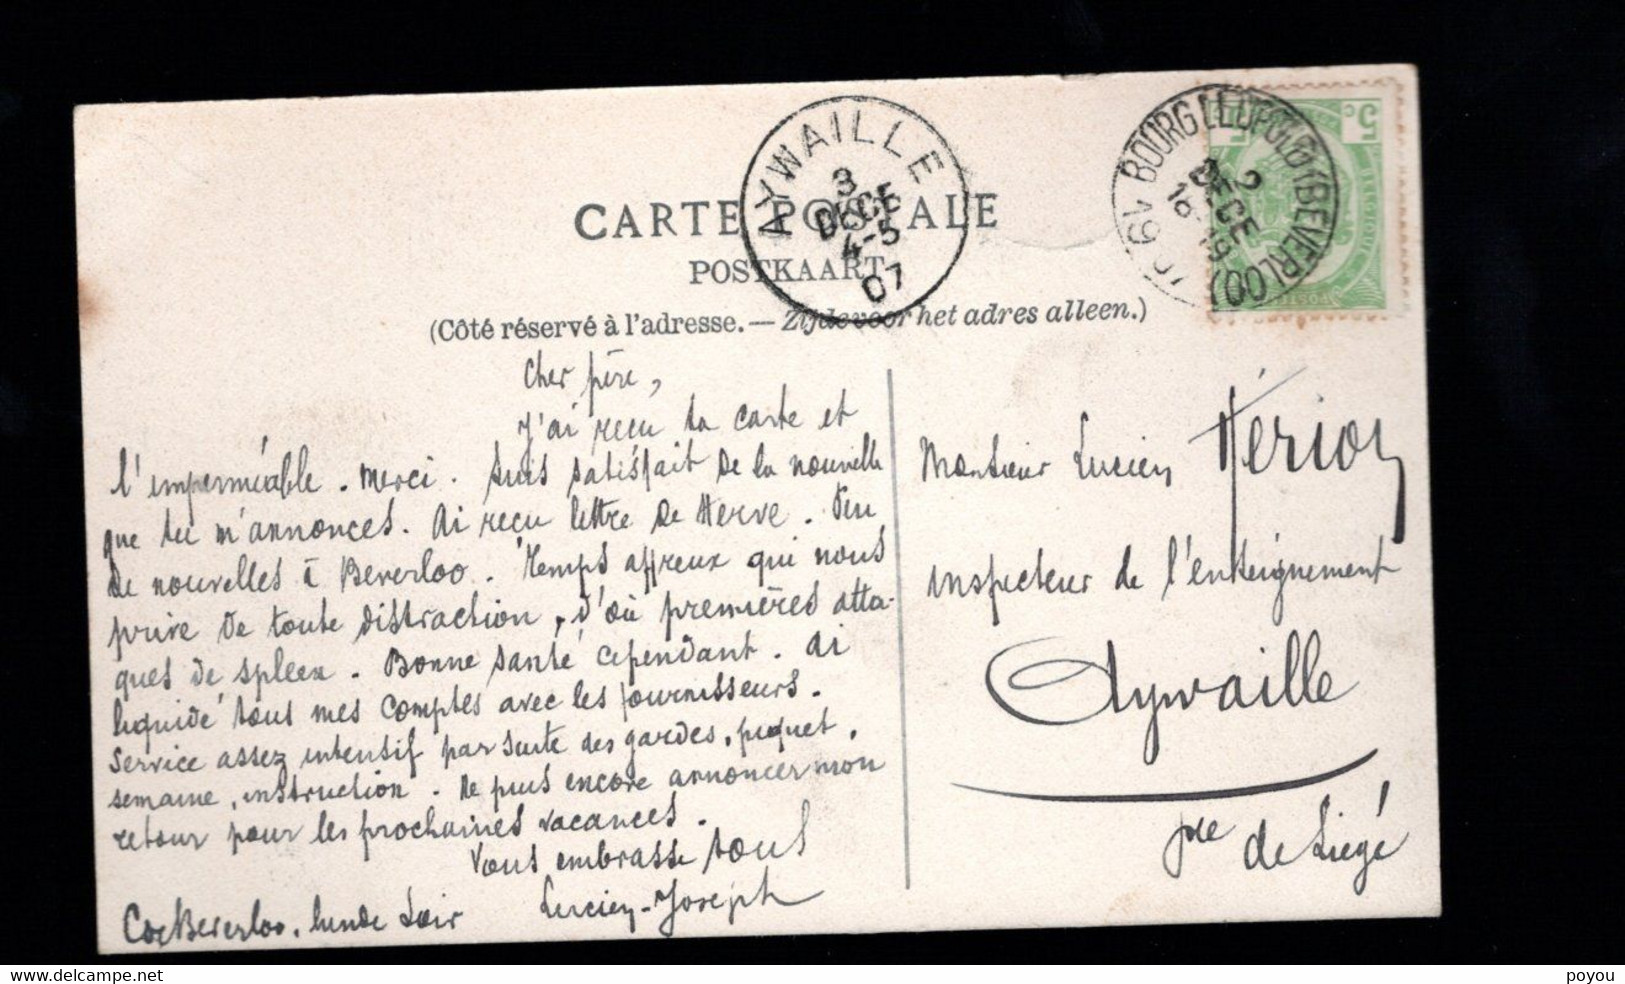 CARTE POSTALE
POSTKAART
(Côté réservé à l'adresse. — Zijde voor het adres alleen.)
AYWAILLE
3
DECE
4-5
07
BOURG LEOPOLD (BEVERLOO)
2
DECE
5c
Cher père,
J'ai reçu ta carte et
l'imperméable. Merci. Suis satisfait de la nouvelle
que tu m'annonces. Ai reçu lettre de Herve. Peu
de nouvelles à Beverloo. Temps affreux qui nous
prive de toute distraction, d'où premières atta-
ques de spleen. Bonne santé cependant. Ai
liquidé tous mes comptes avec les fournisseurs.
Service assez intensif par suite des gardes, piquet,
semaine, instruction. Ne puis encore annoncer mon
retour pour les prochaines vacances.
Vous embrasse tous
Lucien-Joseph
Beverloo, lundi soir
Monsieur Lucien Hérion
inspecteur de l'enseignement
Aywaille
pce de Liège
poyou